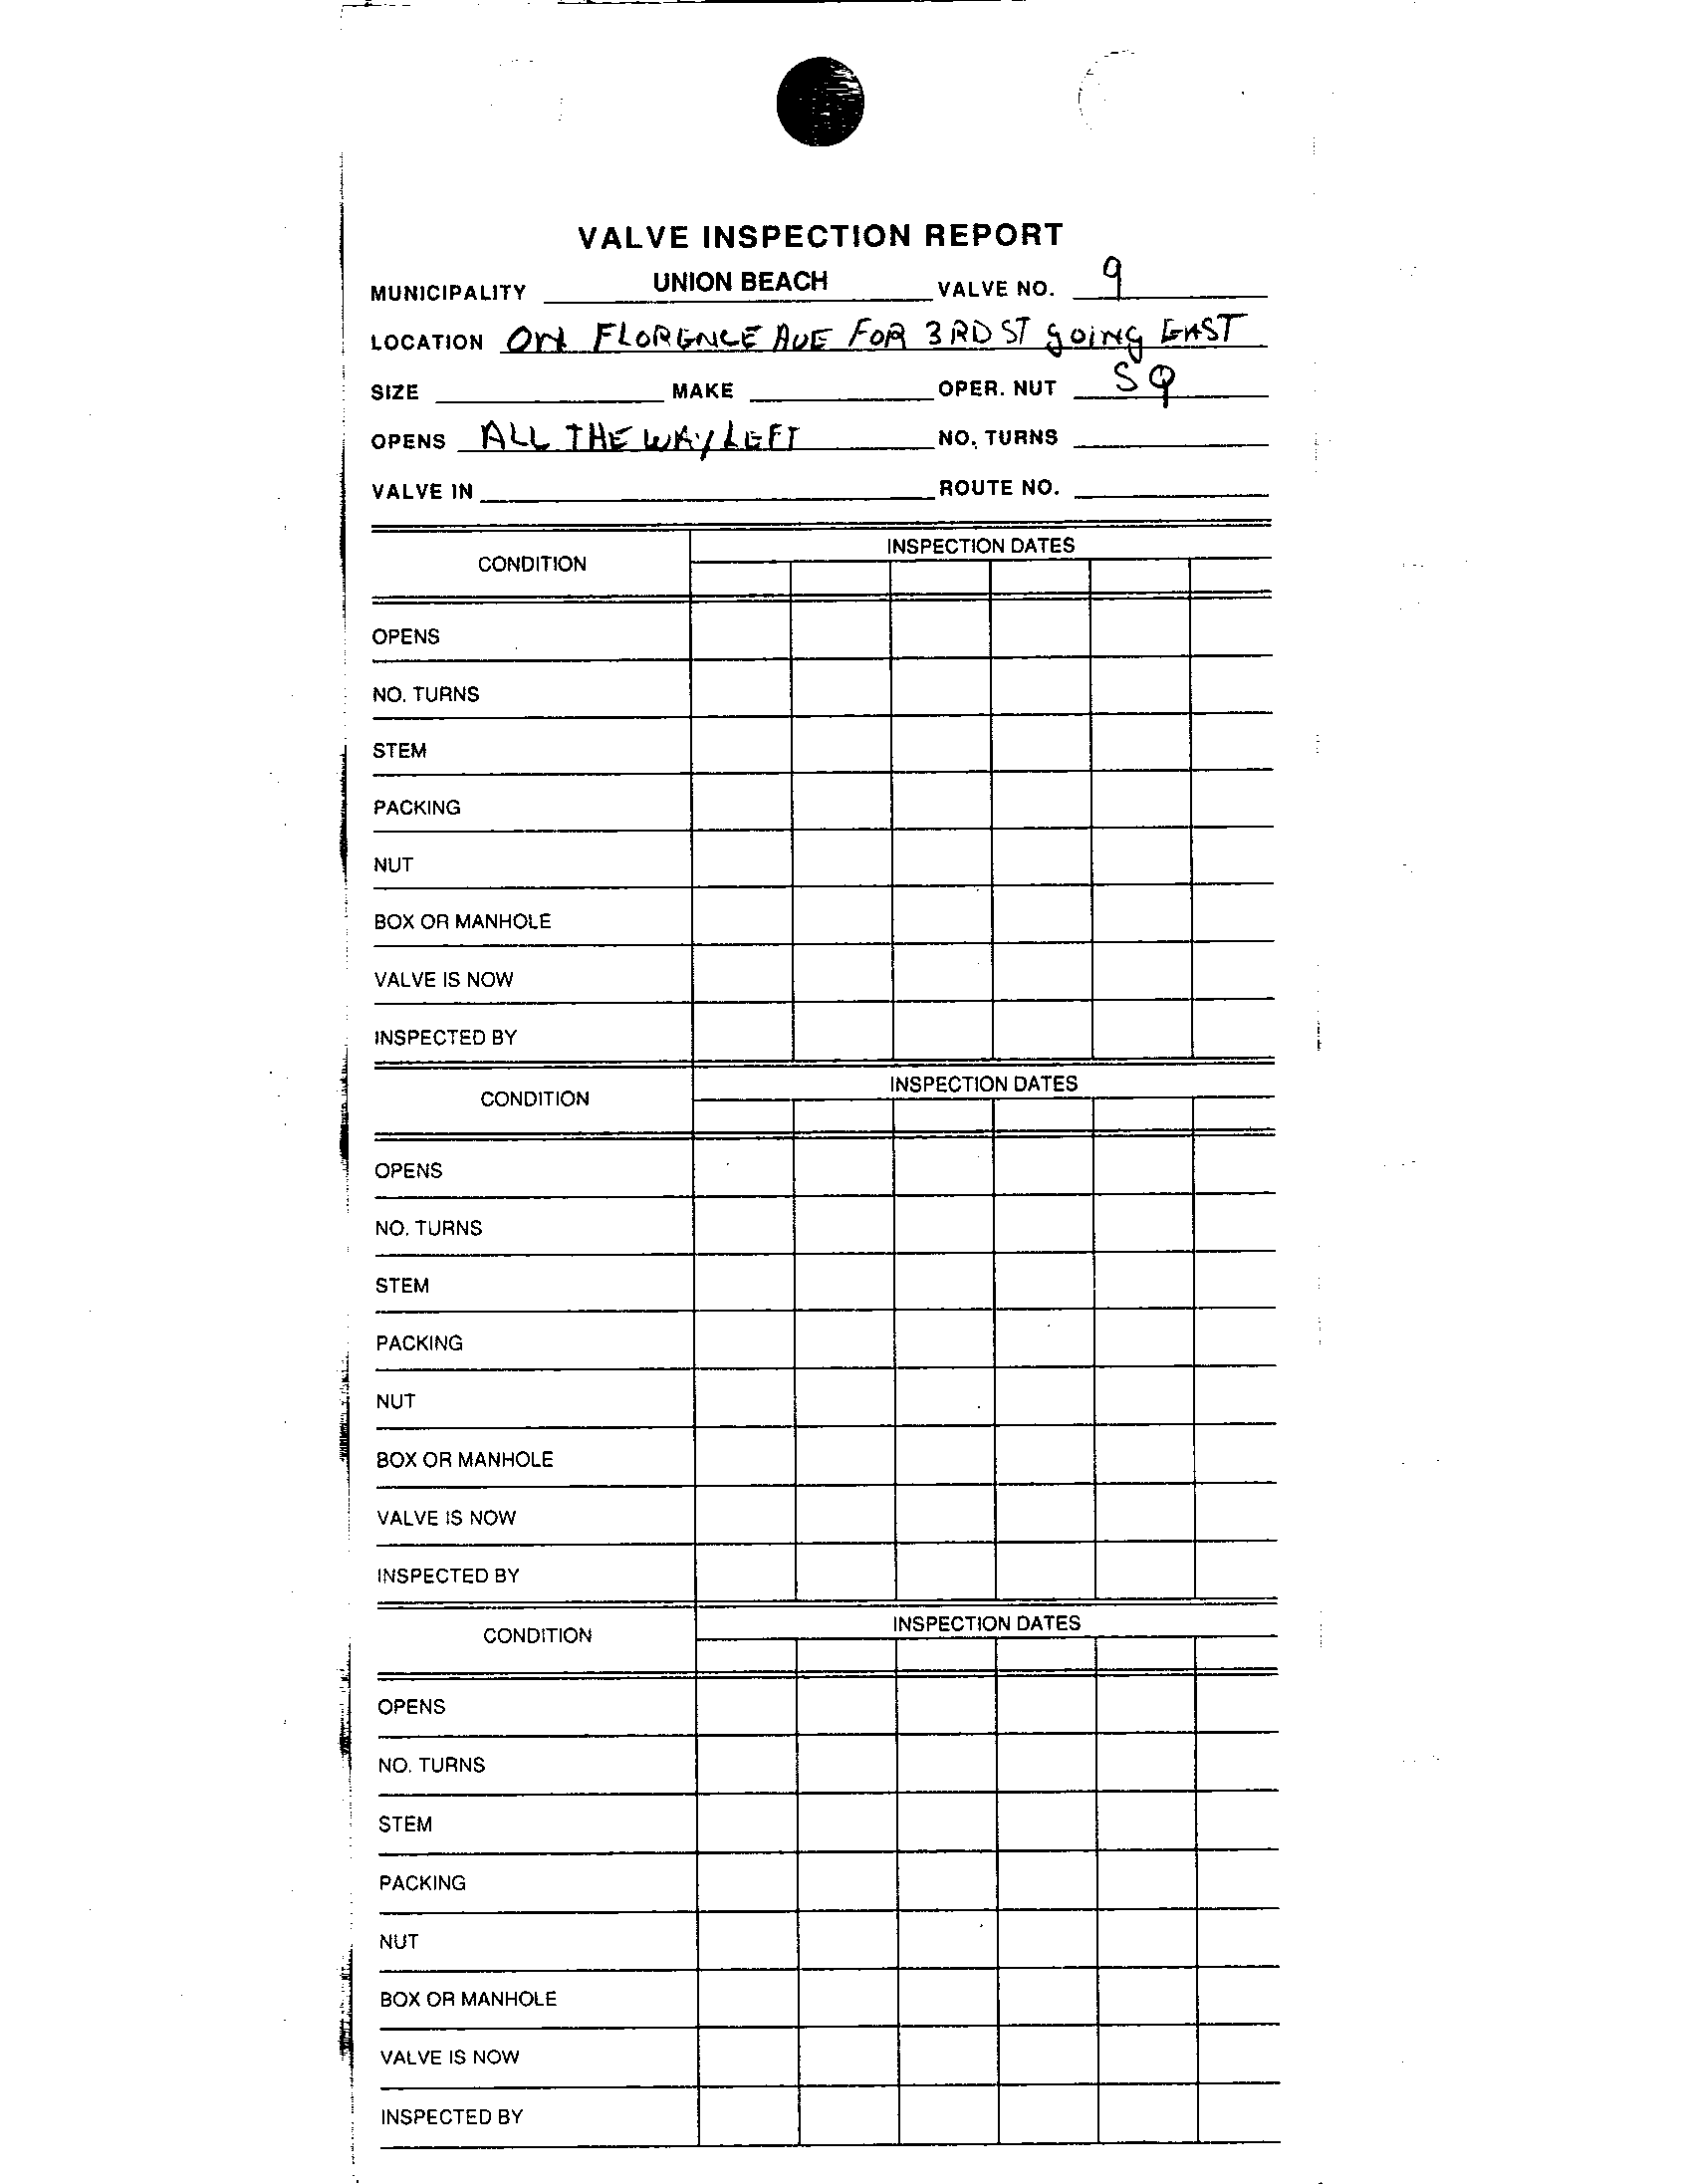 VALVE INSPECTION REPORT
MUNICIPALITY UNION BEACH VALVE NO. 9
LOCATION ON FLORENCE AVE FOR 3RD ST GOING EAST
SIZE MAKE OPER. NUT SQ
OPENS ALL THE WAY LEFT NO. TURNS
VALVE IN ROUTE NO.
CONDITION INSPECTION DATES
OPENS
NO. TURNS
STEM
PACKING
NUT
BOX OR MANHOLE
VALVE IS NOW
INSPECTED BY
CONDITION INSPECTION DATES
OPENS
NO. TURNS
STEM
PACKING
NUT
BOX OR MANHOLE
VALVE IS NOW
INSPECTED BY
CONDITION INSPECTION DATES
OPENS
NO. TURNS
STEM
PACKING
NUT
BOX OR MANHOLE
VALVE IS NOW
INSPECTED BY